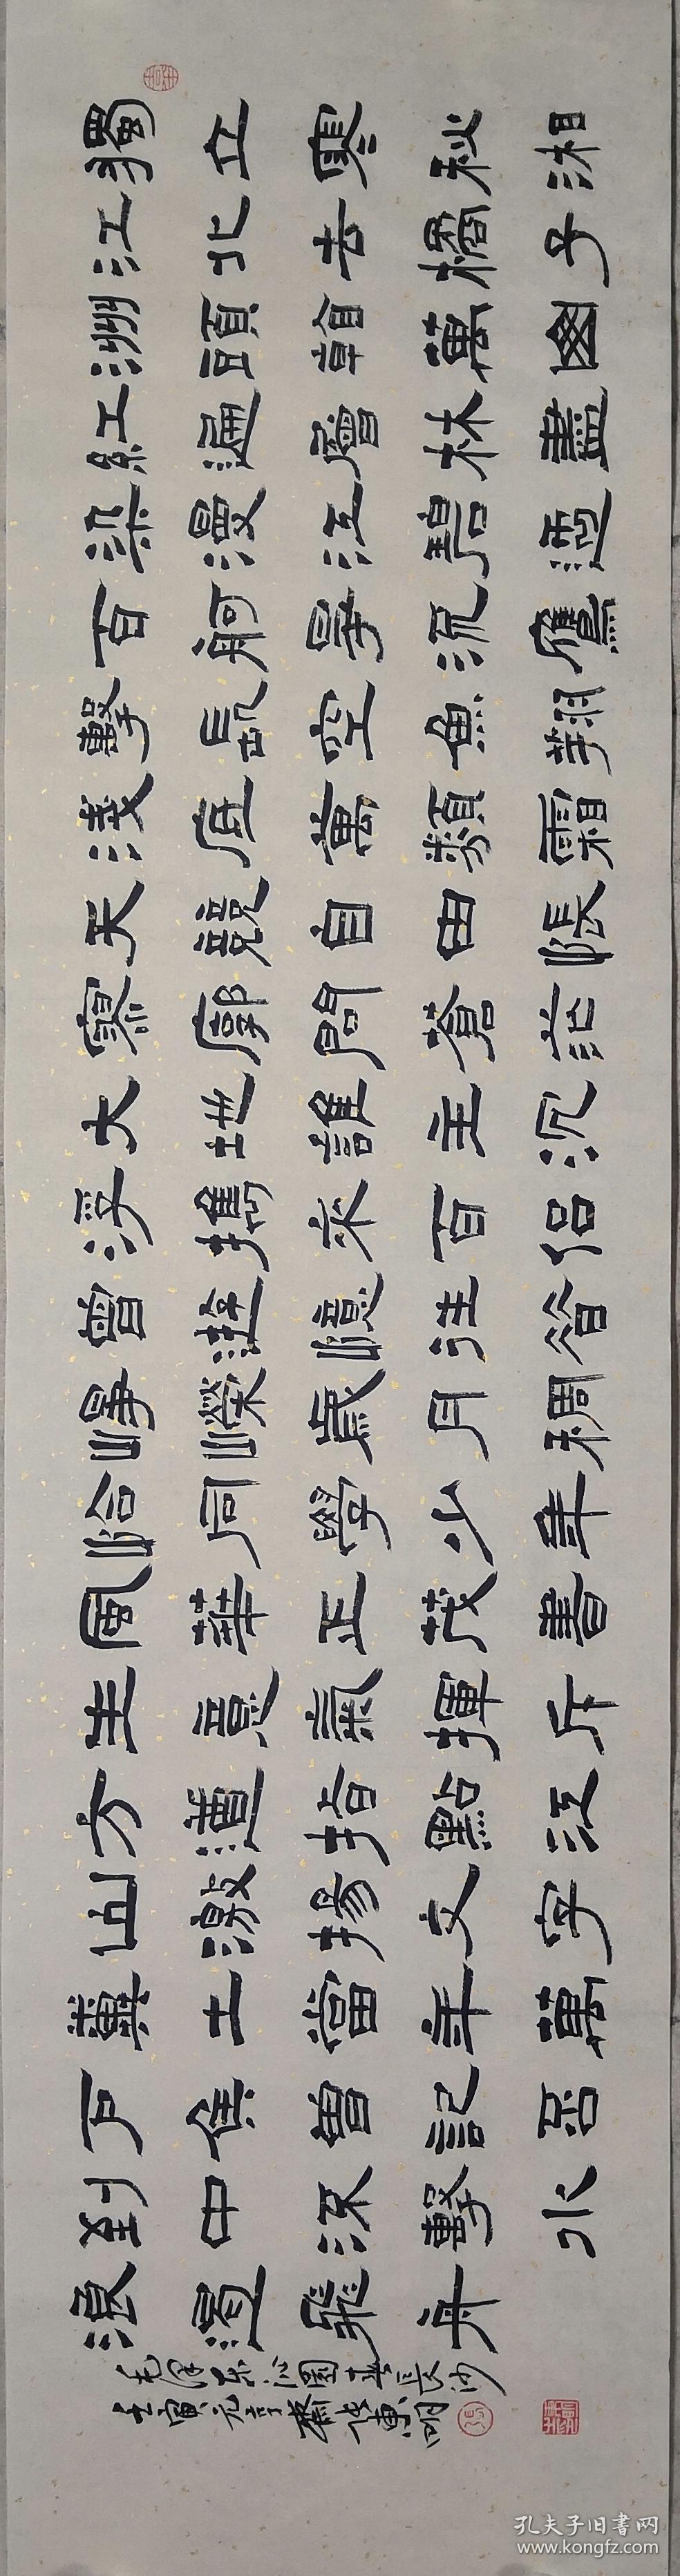 獨立寒秋湘
江北去橘子
洲頭看萬山
紅遍層林盡
染漫江碧透
百舸爭流鷹
擊長空魚翔
淺底萬類霜
天競自由悵
寥廓問蒼茫
大地誰主沉
浮攜來百侶
曾遊憶往昔
崢嶸歲月稠
恰同學少年
風華正茂書
生意氣揮斥
方遒指點江
山激揚文字
糞土當年萬
戶侯曾記否
到中流擊水
浪遏飛舟
毛澤東沁園春長沙
壬寅元
孔夫子旧书网
www.kongfz.com